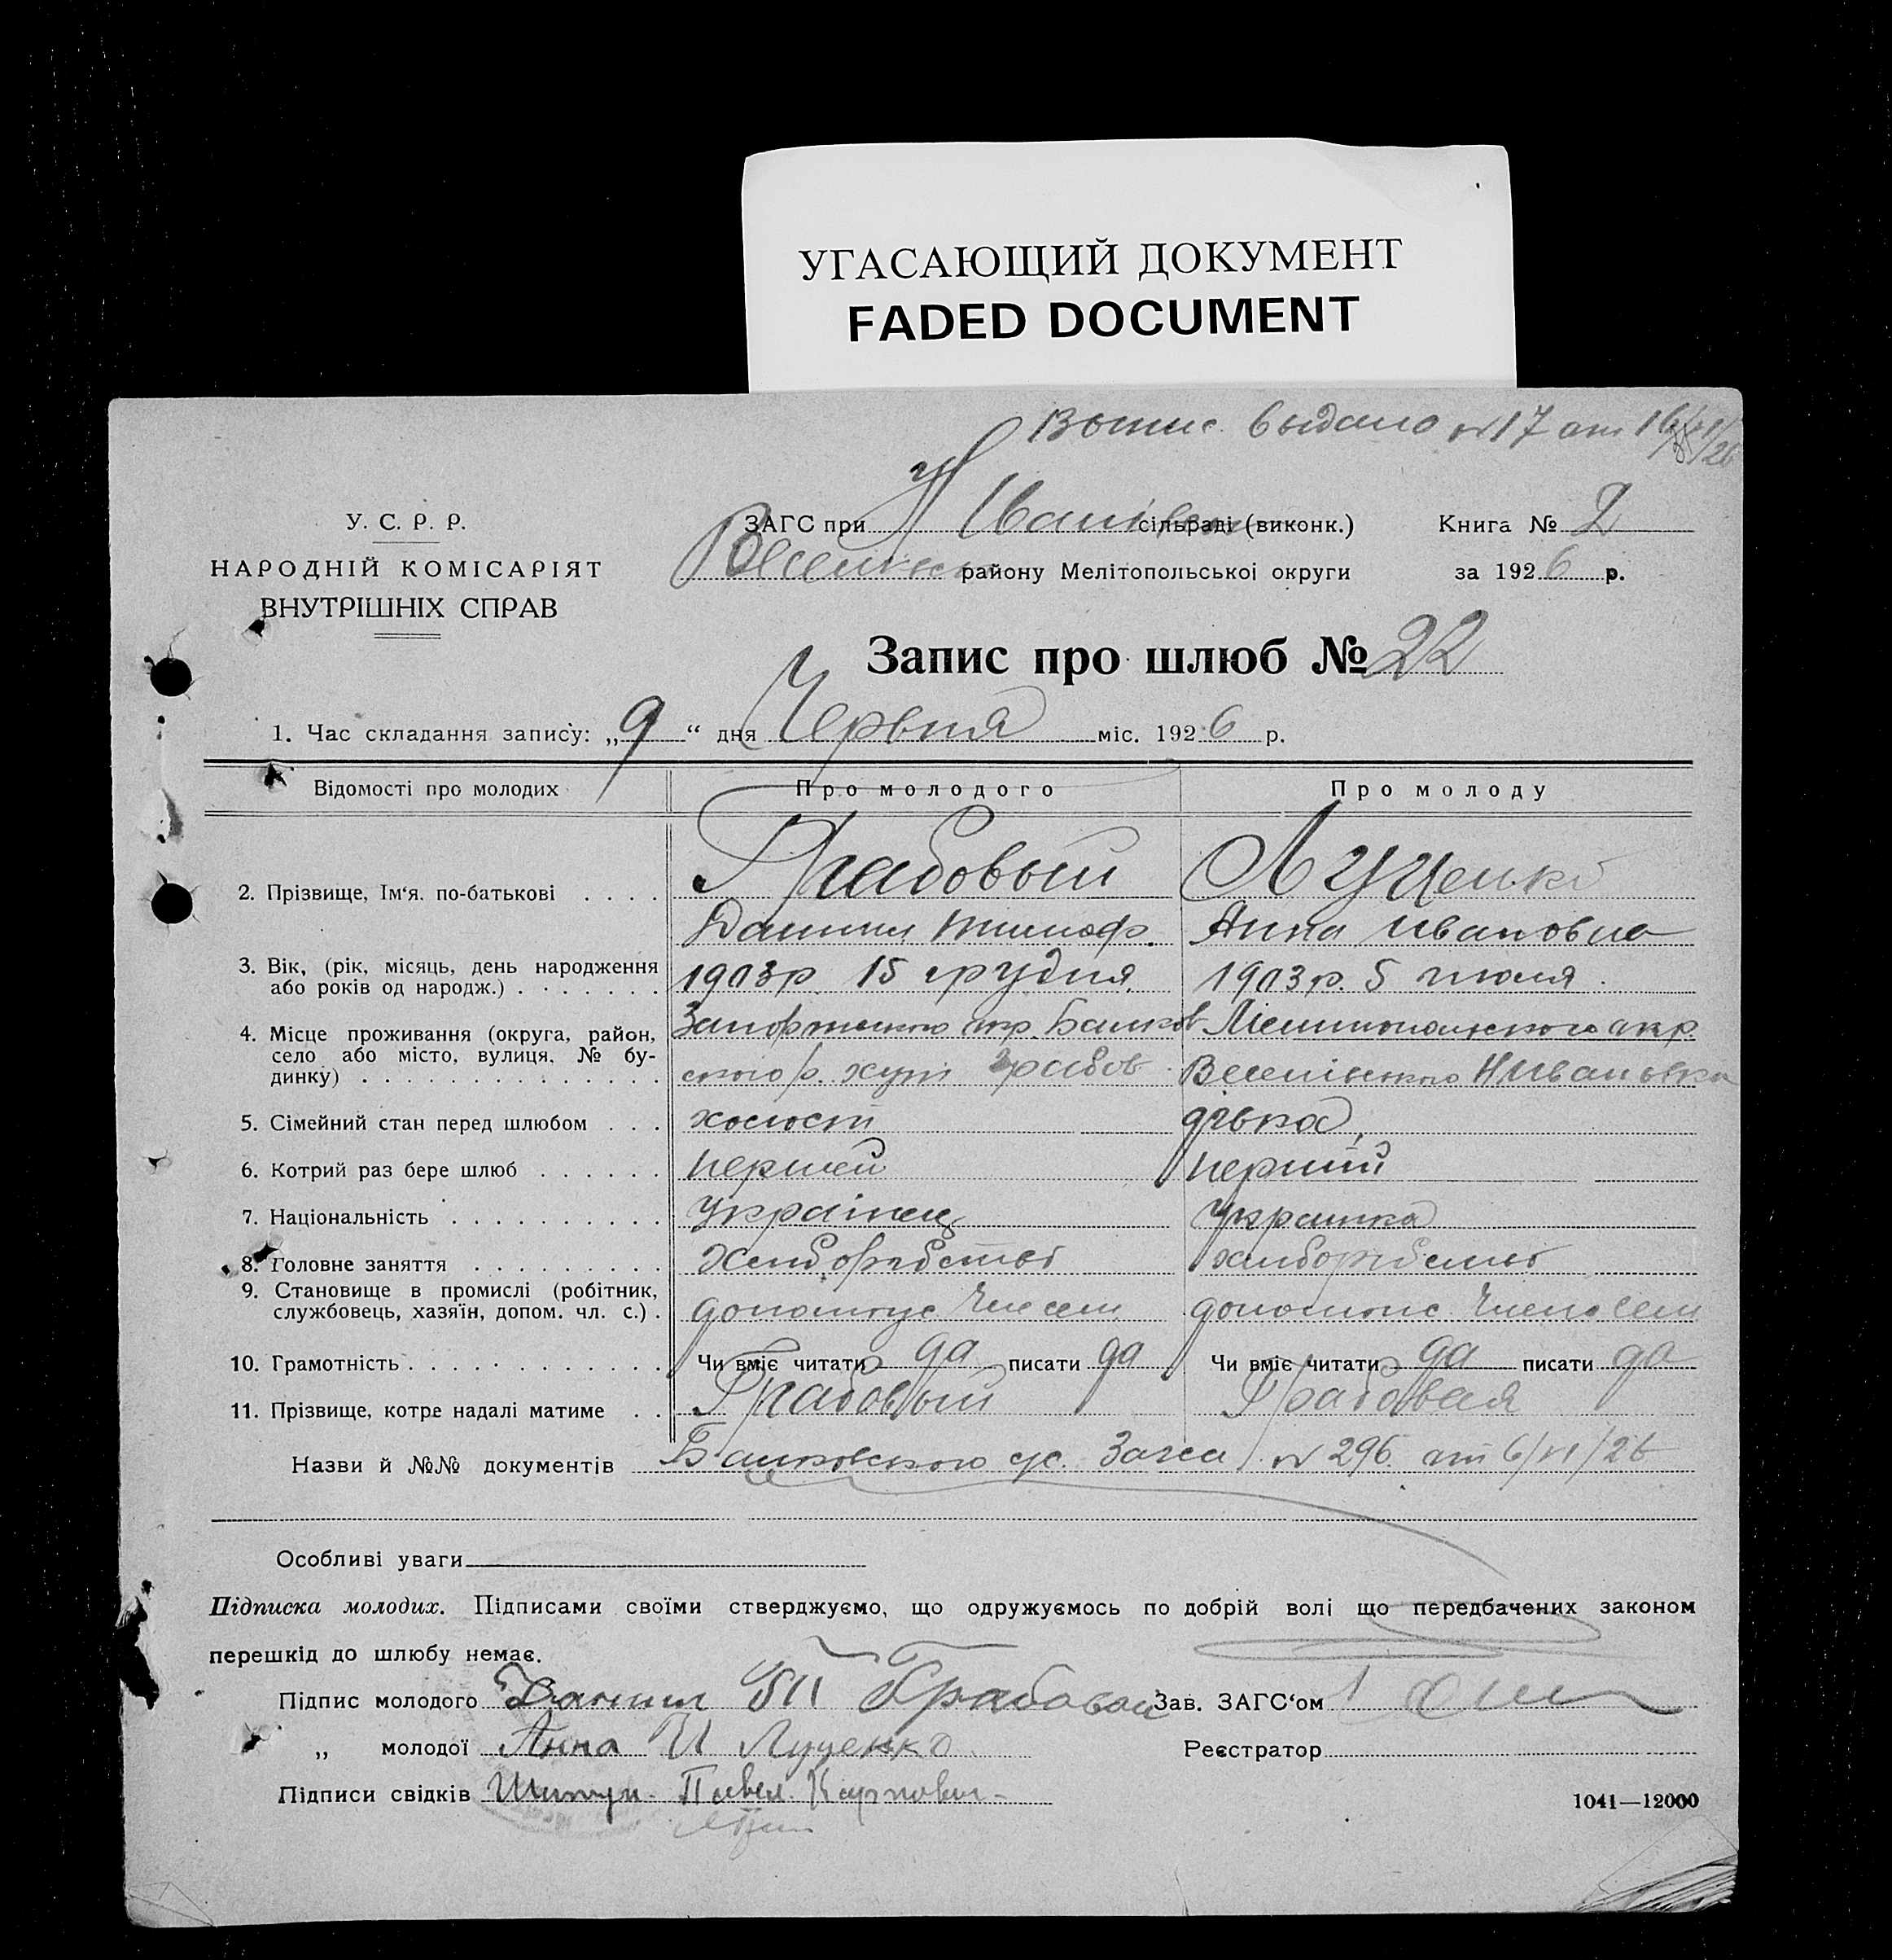 УГАСАЮЩИЙ ДОКУМЕНТ
FADED DOCUMENT
выдано № 17 от 16/VI/26
У. С. Р. Р.
НАРОДНІЙ КОМІСАРІЯТ
ВНУТРІШНІХ СПРАВ
ЗАГС при Н Иванівськ сільраді (виконк.)
району Мелітопольської округи
Книга № 2
за 1926 р.
Запис про шлюб № 22
1. Час складання запису: „9“ дня Червня міс. 1926 р.
Відомості про молодих
Про молодого
Про молоду
2. Прізвище, Ім‘я. по-батькові . . . .
Грабовый
Луценко
Даниил Тимоф.
Анна Ивановна
3. Вік, (рік, місяць, день народження
або років од народж.) . . . . . . .
1903 р. 15 грудня
1903 р. 5 июля.
4. Місце проживання (округа, район,
село або місто, вулиця, № бу-
динку) . . . . . . . . . . . . . .
Запорожського окр. Балков
ского р. хут Грабов
Мелитопольского окр.
Веселівського Н Ивановка
5. Сімейний стан перед шлюбом . . .
холост
дівка
6. Котрий раз бере шлюб . . . . . .
першей
перший
7. Національність . . . . . . . . . .
Українец
Украинка
8. Головне заняття . . . . . . . . .
Хлиборобство
хлиборобство
9. Становище в промислі (робітник,
службовець, хазяїн, допом. чл. с.) .
сем
сем
10. Грамотність . . . . . . . . . . . .
Чи вміє читати да писати да
Чи вміє читати да писати да
11. Прізвище, котре надалі матиме . .
Грабовый
Грабовая
Назви й №№ документів Балковского Загса № 296 от 6/VI/26
Особливі уваги
Підписка молодих. Підписами своїми стверджуємо, що одружуємось по добрій волі що передбачених законом
перешкід до шлюбу немає.
Підпис молодого Данил Грабовой
Зав. ЗАГС‘ом
„ молодої Анна И Луценко
Реєстратор
Підписи свідків Павел Карпович
1041—12000